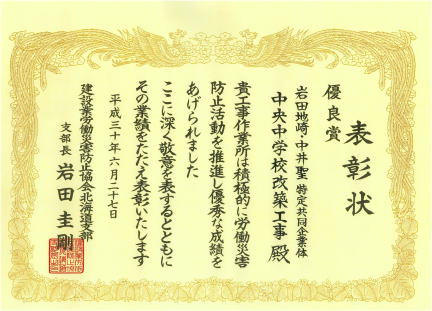 表彰状
優良賞
岩田地崎・中井聖 特定共同企業体
中央中学校改築工事 殿
貴工事作業所は積極的に労働災害
防止活動を推進し優秀な成績を
あげられました
ここに深く敬意を表するとともに
その業績をたたえ表彰いたします
平成三十年六月二十七日
建設業労働災害防止協会北海道支部
支部長 岩田圭剛